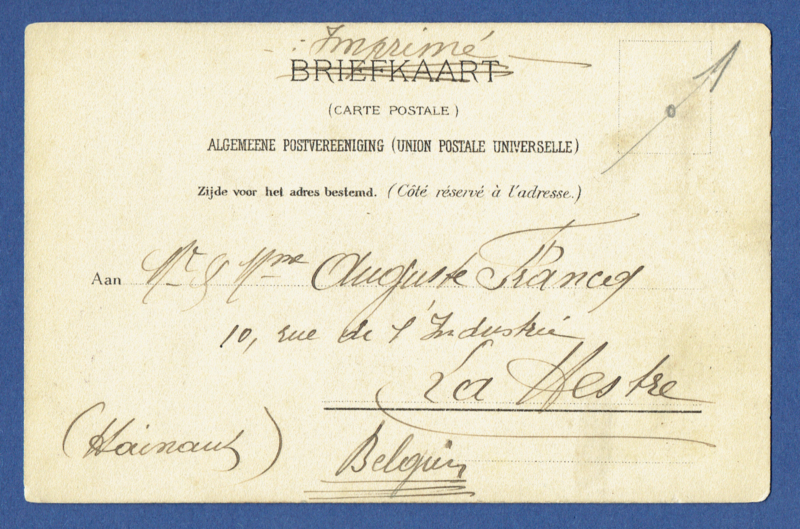 Imprimé
BRIEFKAART
(CARTE POSTALE)
ALGEMEENE POSTVEREENIGING (UNION POSTALE UNIVERSELLE)
Zijde voor het adres bestemd. (Côté réservé à l'adresse.)
Aan Mr & Mme Auguste Francq
10, rue de l'Industrie
La Hestre
(Hainaut)
Belgium